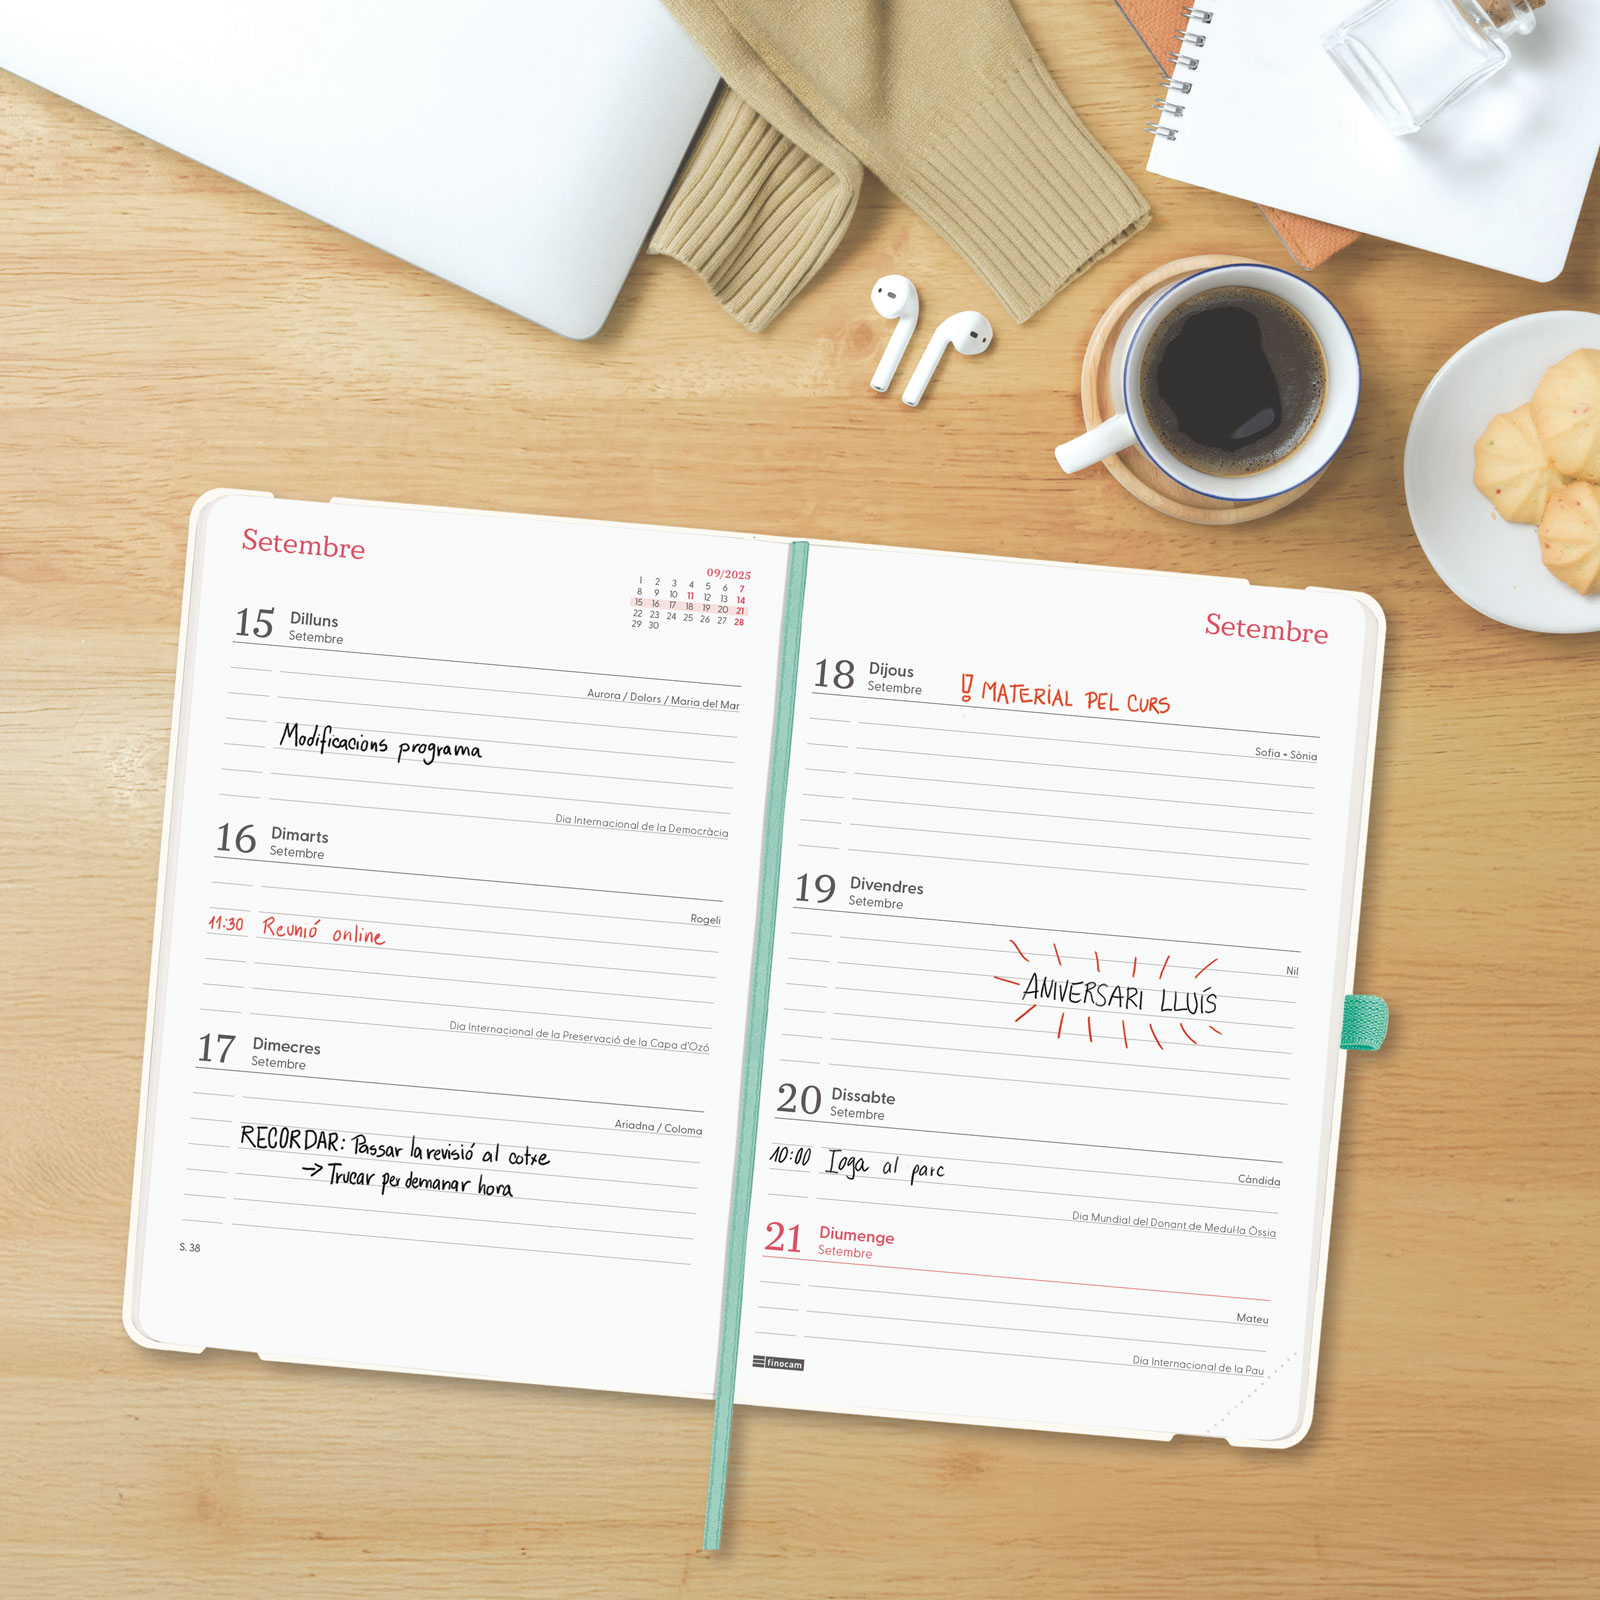 Setembre
09/2025
1 2 3 4 5 6 7
8 9 10 11 12 13 14
15 16 17 18 19 20 21
22 23 24 25 26 27 28
29 30
15 Dilluns
Setembre
Aurora / Dolors / Maria del Mar
Modificacions programa
Dia Internacional de la Democràcia
16 Dimarts
Setembre
Rogeli
11:30 Reunió online
Dia Internacional de la Preservació de la Capa d'Ozó
17 Dimecres
Setembre
Ariadna / Coloma
RECORDAR: Passar la revisió al cotxe
→ Trucar per demanar hora
S. 38
Setembre
18 Dijous
Setembre
!! MATERIAL PEL CURS
Sofia - Sònia
19 Divendres
Setembre
Nil
ANIVERSARI LLUÍS
20 Dissabte
Setembre
10:00 Ioga al parc
Càndida
Dia Mundial del Donant de Medul·la Òssia
21 Diumenge
Setembre
Mateu
Dia Internacional de la Pau
finocam